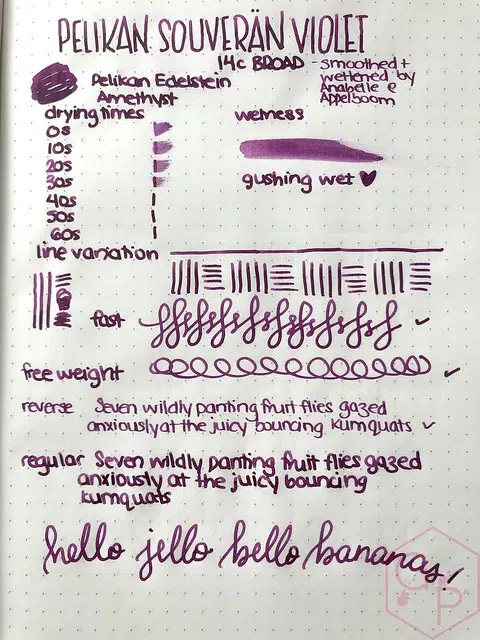 PELIKAN SOUVERÄN VIOLET
14c BROAD - smoothed +
wettened by
Anabelle @
Appelboom
Pelikan Edelstein
Amethyst
drying times
0s
10s
20s
30s
40s
50s
60s
wetness
gushing wet ♥
line variation
fast ✓
free weight ✓
reverse Seven wildly panting fruit flies gazed
anxiously at the juicy bouncing kumquats ✓
regular Seven wildly panting fruit flies gazed
anxiously at the juicy bouncing
kumquats
hello jello bello bananas!